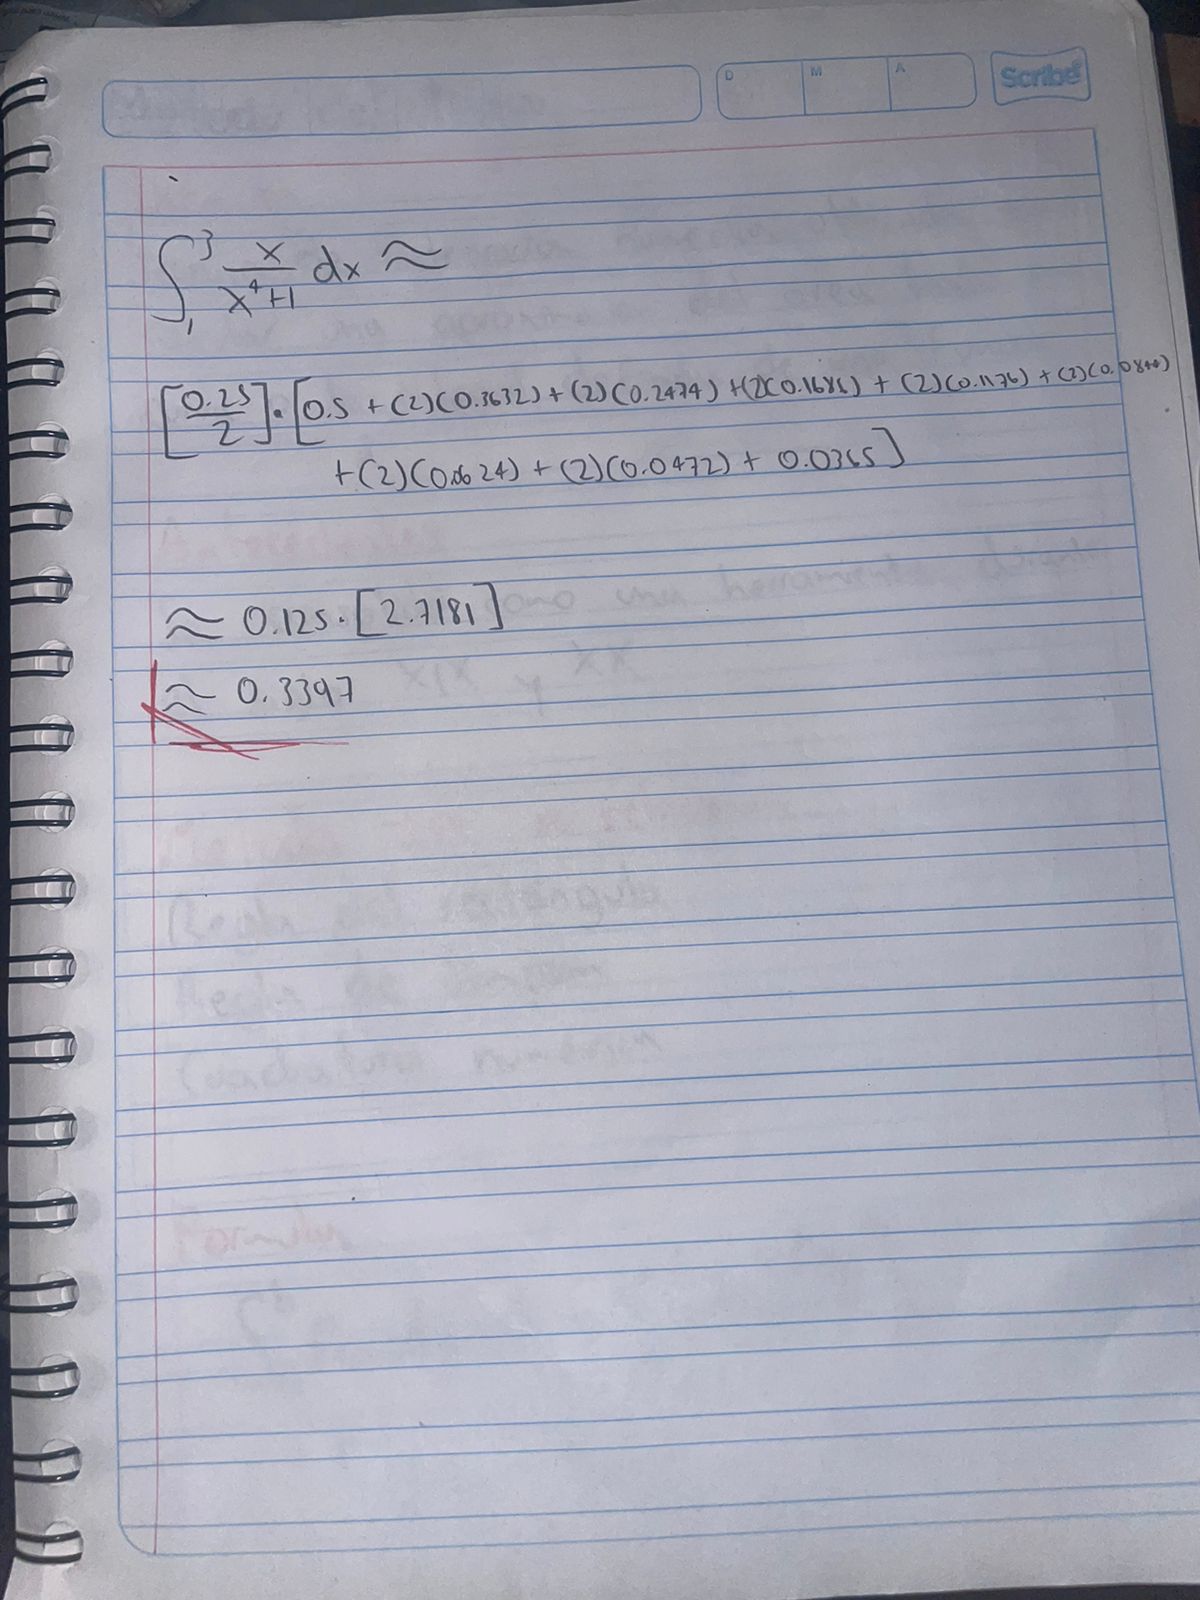 D M A Scribe
∫₁³ x/(x⁴+1) dx ≈
[0.25/2]·[0.5 + (2)(0.3632) + (2)(0.2474) + (2)(0.1686) + (2)(0.1176) + (2)(0.0840)
+ (2)(0.0624) + (2)(0.0472) + 0.0365]
≈ 0.125·[2.7181]
≈ 0.3397